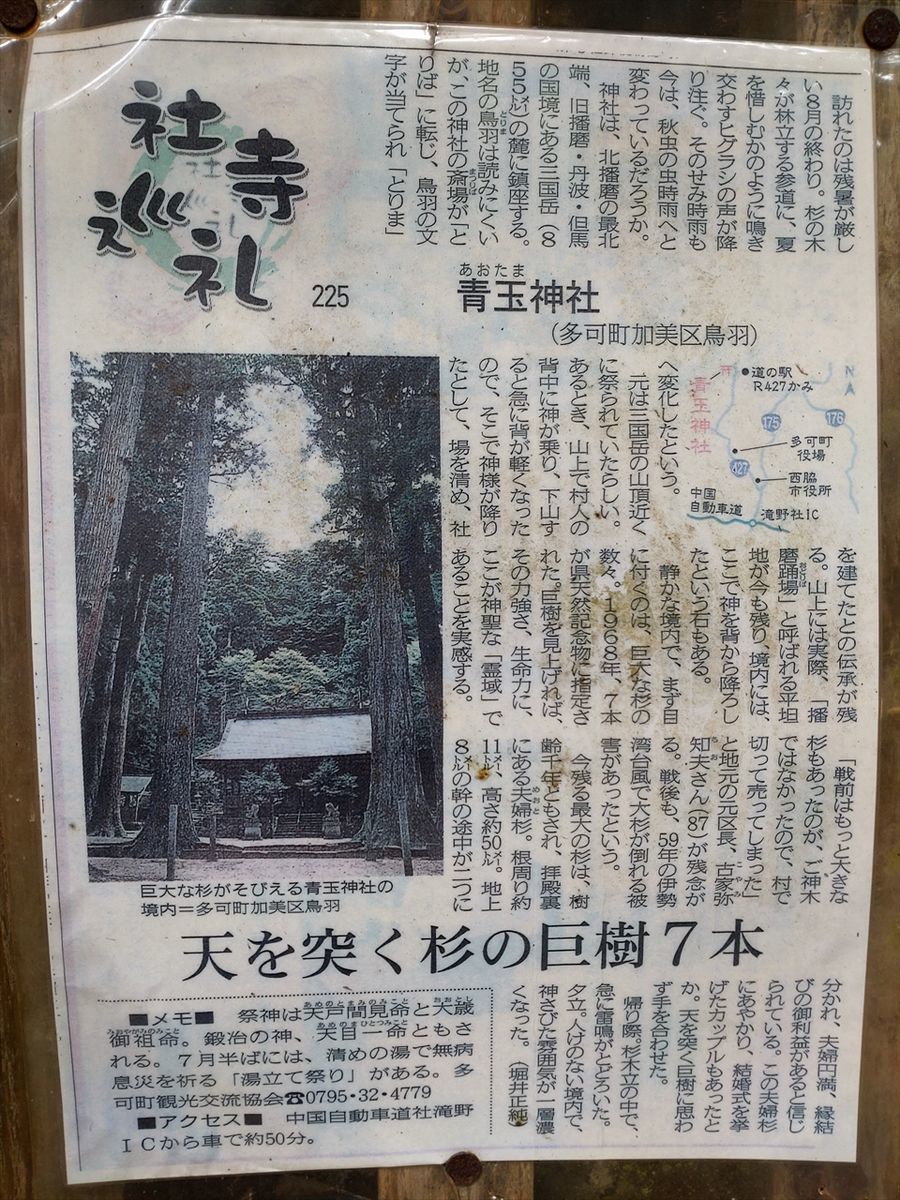 社寺巡礼
225
青玉神社
あおたま
(多可町加美区鳥羽)
訪れたのは残暑が厳し
い8月の終わり。杉の木
々が林立する参道に、夏
を惜しむかのように鳴き
交わすヒグラシの声が降
り注ぐ。そのせみ時雨も
今は、秋虫の虫時雨へと
変わっているだろうか。
神社は、北播磨の最北
端、旧播磨・丹波・但馬
の国境にある三国岳(8
55メートル)の麓に鎮座する。
地名の鳥羽は読みにくい
とりま
が、この神社の斎場が「と
まつりば
りば」に転じ、鳥羽の文
字が当てられ「とりま」
へ変化したという。
元は三国岳の山頂近く
に祭られていたらしい。
あるとき、山上で村人の
背中に神が乗り、下山す
ると急に背が軽くなった
ので、そこで神様が降り
たとして、場を清め、社
を建てたとの伝承が残
る。山上には実際、「播
磨踊場」と呼ばれる平坦
おどりば
地が今も残り、境内には、
ここで神を背から降ろし
たという石もある。
静かな境内で、まず目
に付くのは、巨大な杉の
数々。1968年、7本
が県天然記念物に指定さ
れた。巨樹を見上げれば、
その力強さ、生命力に、
ここが神聖な「霊域」で
あることを実感する。
「戦前はもっと大きな
杉もあったのが、ご神木
ではなかったので、村で
切って売ってしまった」
と地元の元区長、古家弥
こやみ
知夫さん(87)が残念が
ちお
る。戦後も、59年の伊勢
湾台風で大杉が倒れる被
害があったという。
今残る最大の杉は、樹
齢千年ともされ、拝殿裏
にある夫婦杉。根周り約
めおと
11メートル、高さ約50メートル。地上
8メートルの幹の途中が二つに
分かれ、夫婦円満、縁結
びの御利益があると信じ
られている。この夫婦杉
にあやかり、結婚式を挙
げたカップルもあったと
か。天を突く巨樹に思わ
ず手を合わせた。
帰り際。杉木立の中で、
急に雷鳴がとどろいた。
夕立。人けのない境内で、
神さびた雰囲気が一層濃
くなった。(堀井正純)
道の駅
R427かみ
N
青玉神社
175
176
427
多可町
役場
西脇
市役所
中国
自動車道
滝野社IC
巨大な杉がそびえる青玉神社の
境内=多可町加美区鳥羽
天を突く杉の巨樹7本
■メモ■ 祭神は天戸間見命と大歳
あめのとまみのみこと おおとし
御祖命。鍛冶の神、天目一命ともさ
みおやがみのみこと あめのまひとつみこと
れる。7月半ばには、清めの湯で無病
息災を祈る「湯立て祭り」がある。多
可町観光交流協会☎0795・32・4779
■アクセス■ 中国自動車道社滝野
ICから車で約50分。